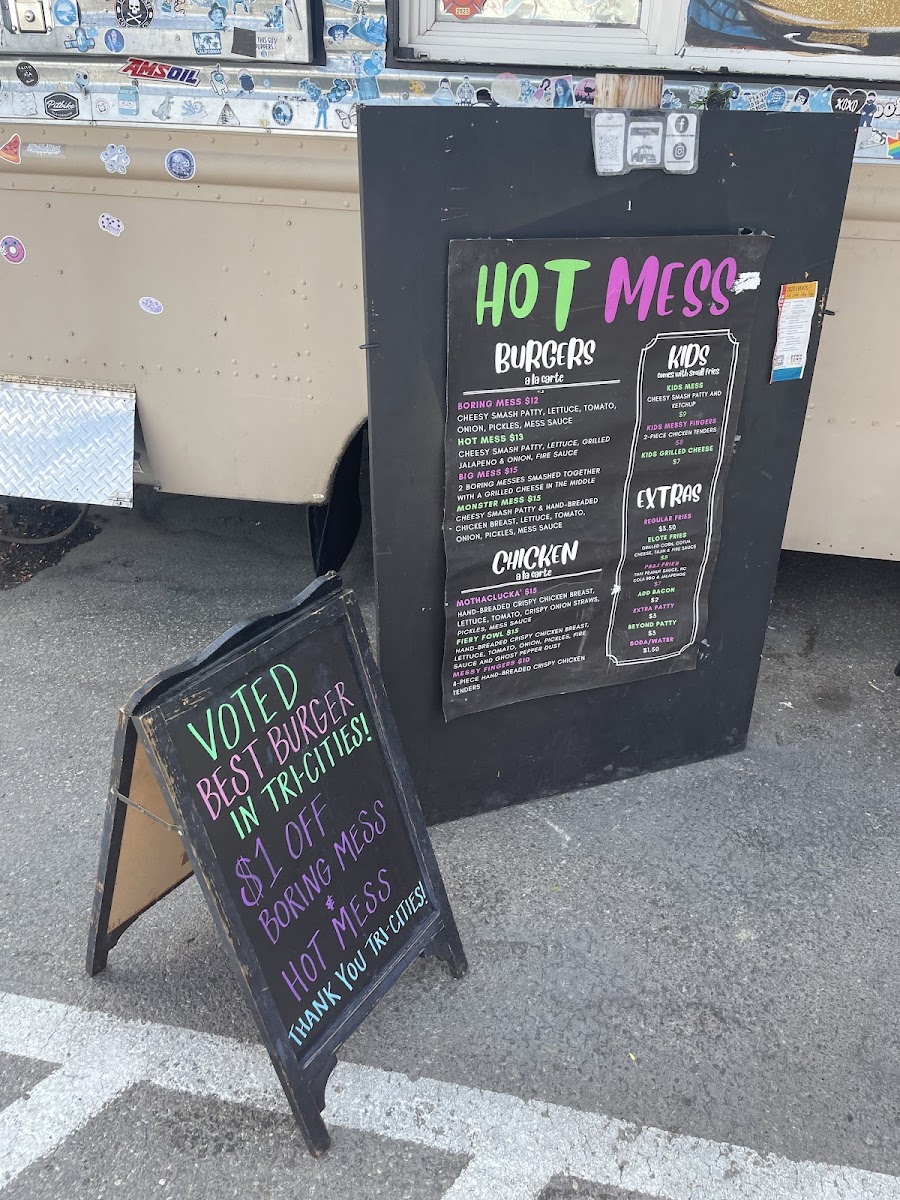 AMSOIL
Pitbike
THIS GUY
PUPPERS
2023
XOXO
HOT MESS
BURGERS
a la carte
BORING MESS $12
CHEESY SMASH PATTY, LETTUCE, TOMATO,
ONION, PICKLES, MESS SAUCE
HOT MESS $13
CHEESY SMASH PATTY, LETTUCE, GRILLED
JALAPENO & ONION, FIRE SAUCE
BIG MESS $15
2 BORING MESSES SMASHED TOGETHER
WITH A GRILLED CHEESE IN THE MIDDLE
MONSTER MESS $15
CHEESY SMASH PATTY & HAND-BREADED
CHICKEN BREAST, LETTUCE, TOMATO,
ONION, PICKLES, MESS SAUCE
CHICKEN
a la carte
MOTHACLUCKA' $15
HAND-BREADED CRISPY CHICKEN BREAST,
LETTUCE, TOMATO, CRISPY ONION STRAWS,
PICKLES, MESS SAUCE
FIERY FOWL $15
HAND-BREADED CRISPY CHICKEN BREAST,
LETTUCE, TOMATO, ONION, PICKLES, FIRE
SAUCE AND GHOST PEPPER DUST
MESSY FINGERS $10
4-PIECE HAND-BREADED CRISPY CHICKEN
TENDERS
KIDS
comes with small fries
KIDS MESS
CHEESY SMASH PATTY AND
KETCHUP
$9
KIDS MESSY FINGERS
2-PIECE CHICKEN TENDERS
$8
KIDS GRILLED CHEESE
$7
EXTRAS
REGULAR FRIES
$3.50
ELOTE FRIES
GRILLED CORN, COTIJA
CHEESE, TAJIN & FIRE SAUCE
$8
PB&J FRIES
THAI PEANUT SAUCE, RC
COLA BBQ & JALAPENOS
$7
ADD BACON
$2
EXTRA PATTY
$3
BEYOND PATTY
$3
SODA/WATER
$1.50
VOTED
BEST BURGER
IN TRI-CITIES!
$1 OFF
BORING MESS
&
HOT MESS
THANK YOU TRI-CITIES!